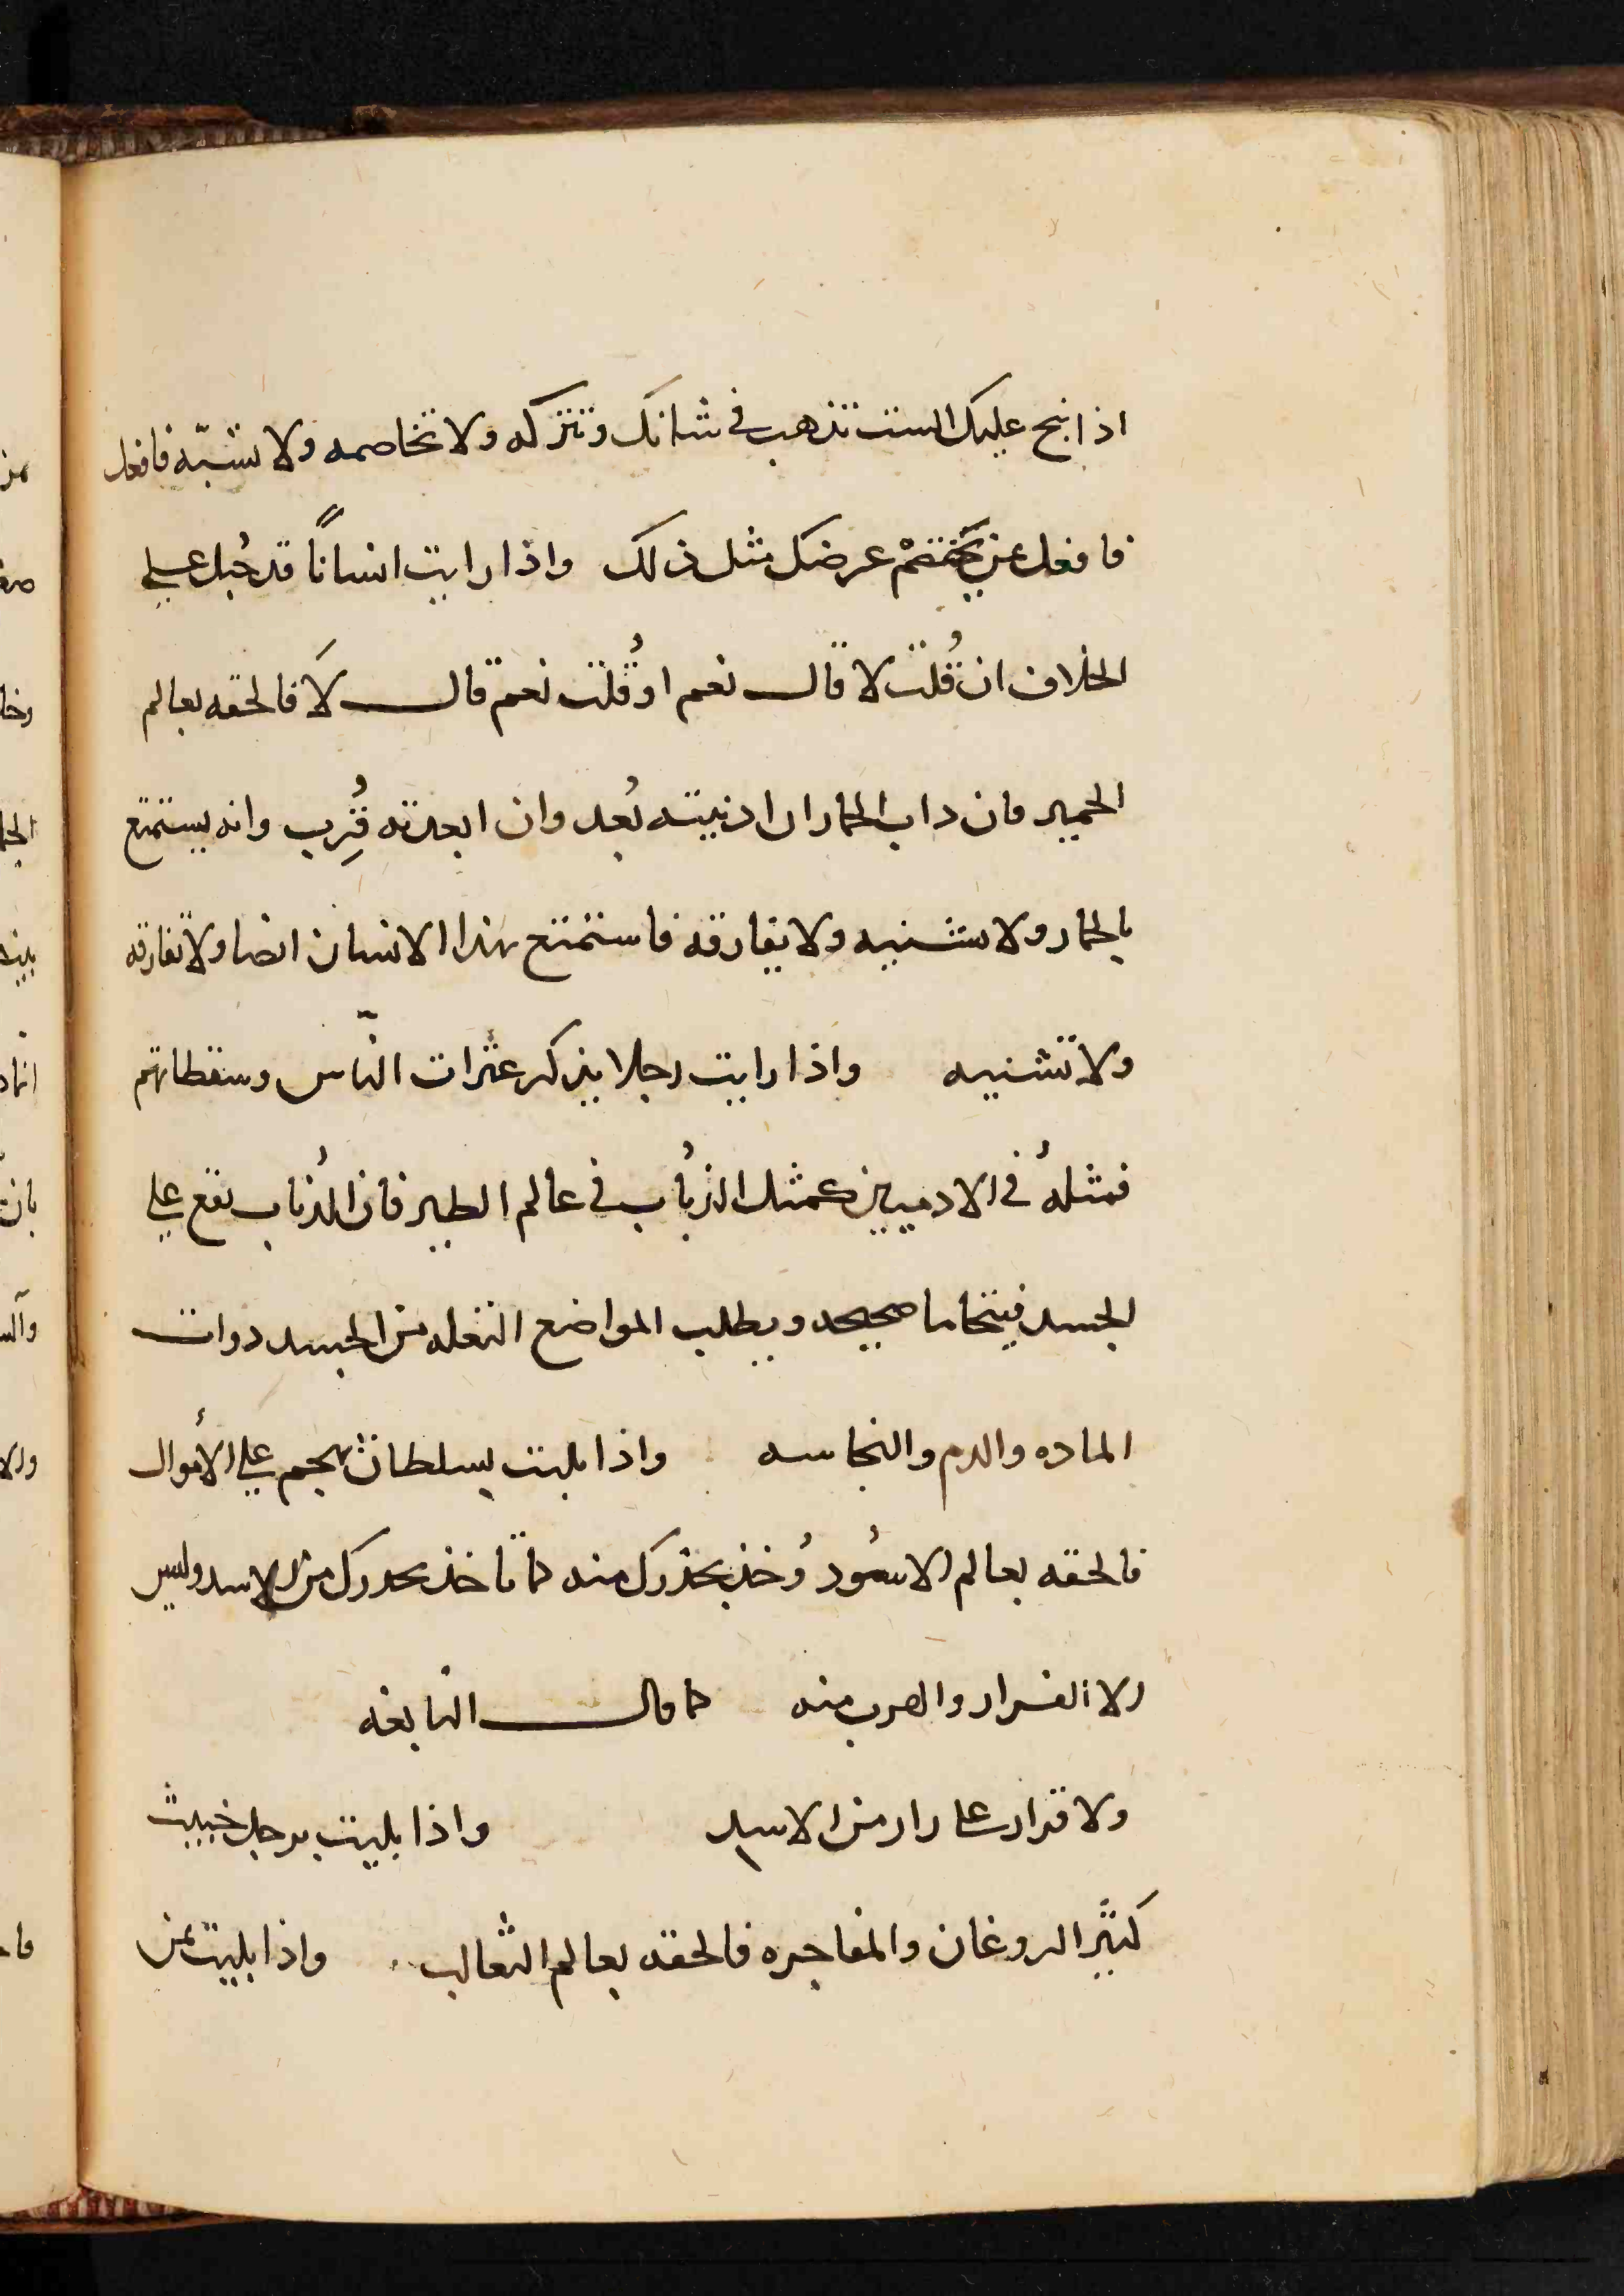 اذا نبح عليك الست تذهب في شانك وتتركه ولا تخاصمه ولا تسبّه فافعل
فافعل عن يختتم عرضك مثل ذلك واذا رايت انسانًا قد جُبل على
الخلاف ان قُلت لا قال نعم او قُلت نعم قال لَا فالحقه بعالم
الحمير فان داب الحمار ان ادنيته بُعد وان ابعدته قُرِب وانه يستمتع
بالحمار ولا تسبه ولا يفارقه فاستمتع بهذا الانسان ايضا ولا تفارقه
ولا تسبه واذا رايت رجلا يذكر عثرات النّاس وسقطاتهم
فمثلهُ في الادميين كمثل الذُباب في عالم الطير فان الذُباب يقع على
الجسد فيتحاما صحيحه ويطلب المواضع النغله من الجسد دوات
الماده والدم والنجاسه واذا بليت بسلطان يهجم على الأموال
فالحقه بعالم الاسُود وُخذ بحذرك منه كما تاخذ بحدرك من الاسد وليس
الا الفرار والهرب منه كما قال النابغه
ولا قرار على زار من الاسد واذا بليت برجل خبيث
كثير الروغان والمفاجره فالحقه بعالم الثعالب واذا بليت بمن